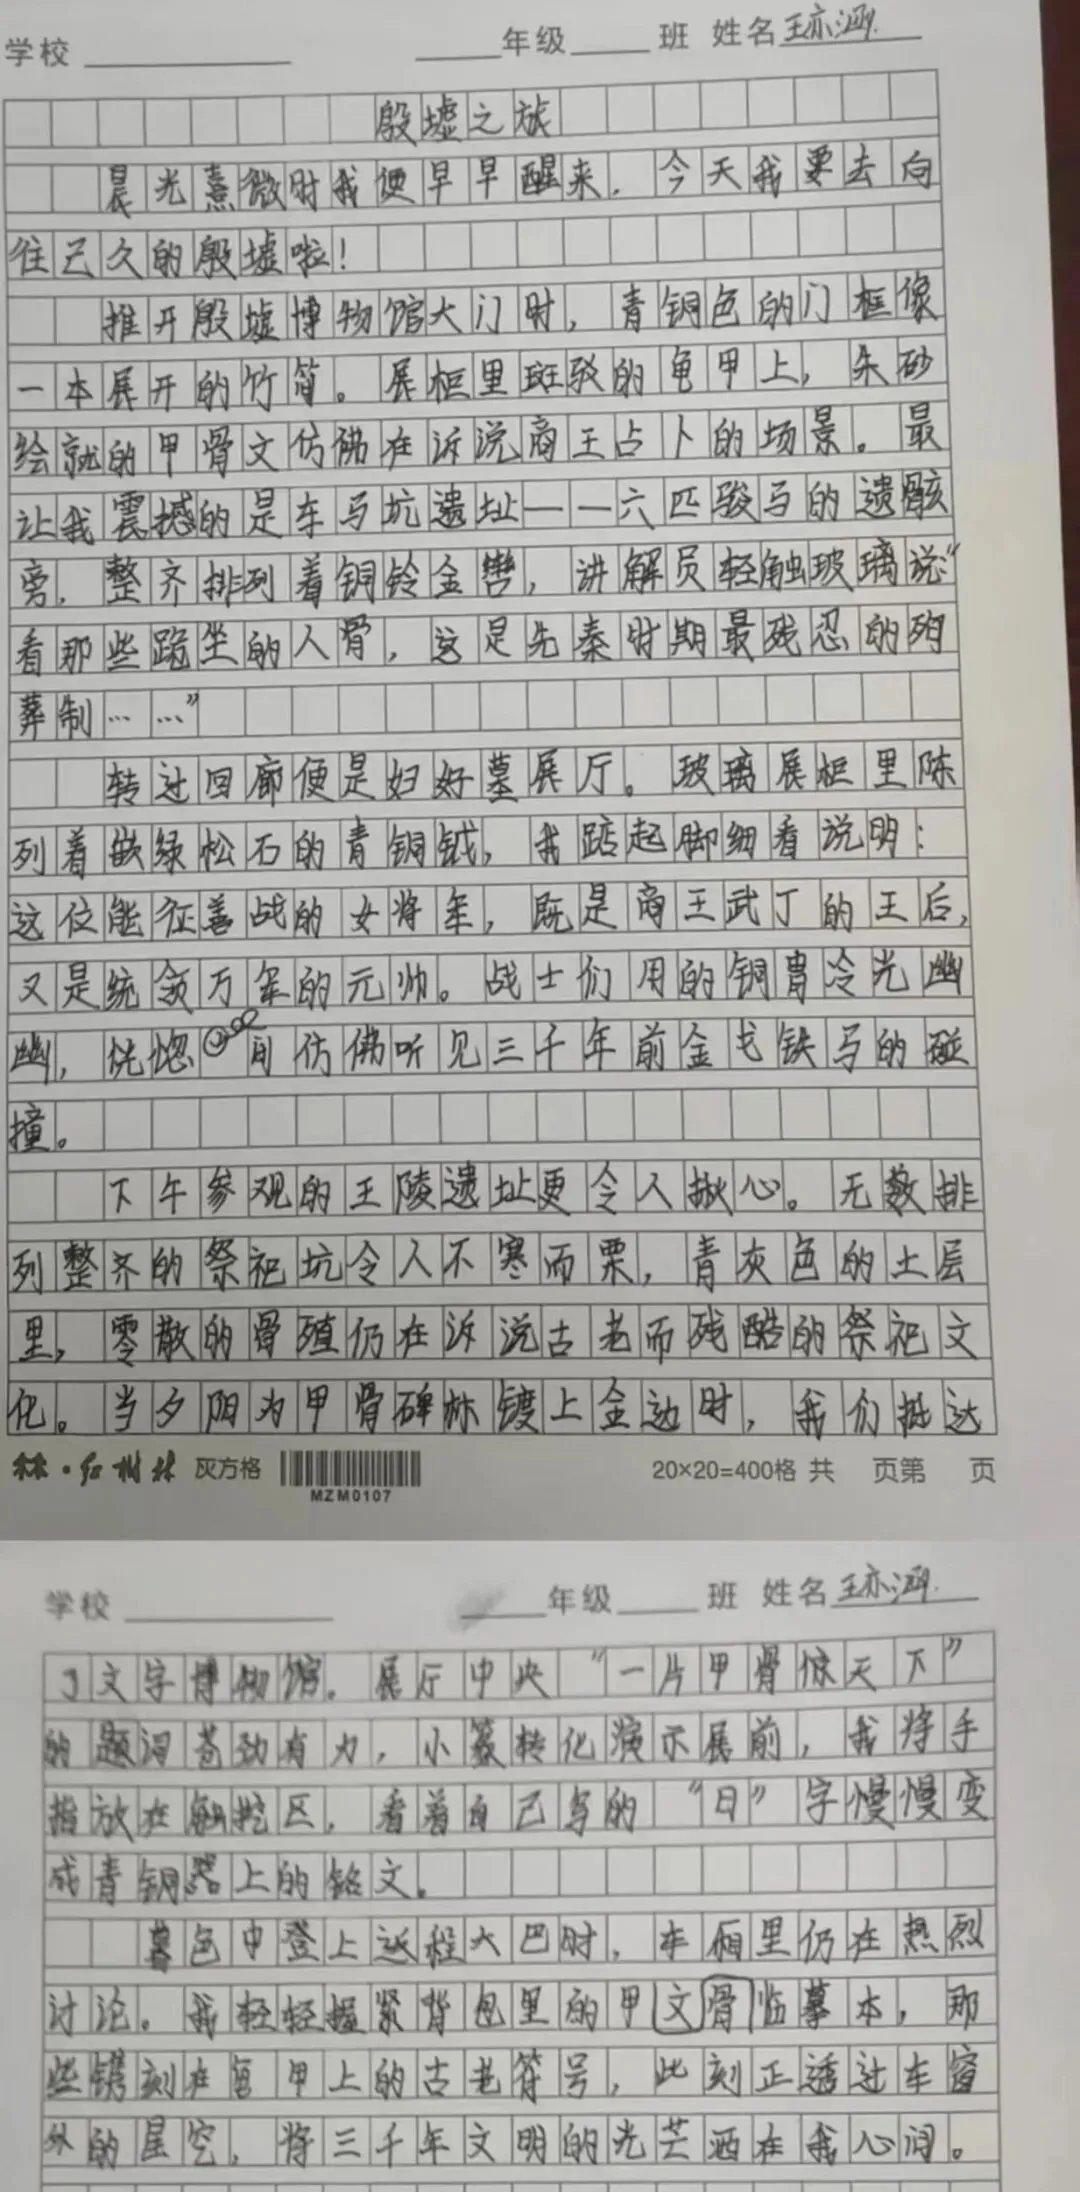 学校 年级 班 姓名 王亦涵
殷墟之旅
晨光熹微时我便早早醒来，今天我要去向
往已久的殷墟啦！
推开殷墟博物馆大门时，青铜色的门框像
一本展开的竹简。展柜里斑驳的龟甲上，朱砂
绘就的甲骨文仿佛在诉说商王占卜的场景。最
让我震撼的是车马坑遗址——六匹骏马的遗骸
旁，整齐排列着铜铃金辔，讲解员轻触玻璃说“
看那些跪坐的人骨，这是先秦时期最残忍的殉
葬制……”
转过回廊便是妇好墓展厅。玻璃展柜里陈
列着嵌绿松石的青铜钺，我踮起脚细看说明：
这位能征善战的女将军，既是商王武丁的王后，
又是统领万军的元帅。战士们用的铜胄冷光幽
幽，恍惚间仿佛听见三千年前金戈铁马的碰
撞。
下午参观的王陵遗址更令人揪心。无数排
列整齐的祭祀坑令人不寒而栗，青灰色的土层
里，零散的骨殖仍在诉说古老而残酷的祭祀文
化。当夕阳为甲骨碑林镀上金边时，我们抵达
森·红树林 灰方格 MZM0107 20×20=400格 共 页第 页
学校 年级 班 姓名 王亦涵
了文字博物馆。展厅中央“一片甲骨惊天下”
的题词苍劲有力，小篆转化演示屏前，我将手
指放在触控区，看着自己写的“日”字慢慢变
成青铜器上的铭文。
暮色中登上返程大巴时，车厢里仍在热烈
讨论。我轻轻握紧背包里的甲文骨临摹本，那
些镌刻在龟甲上的古老符号，此刻正透过车窗
外的星空，将三千年文明的光芒洒在我心间。